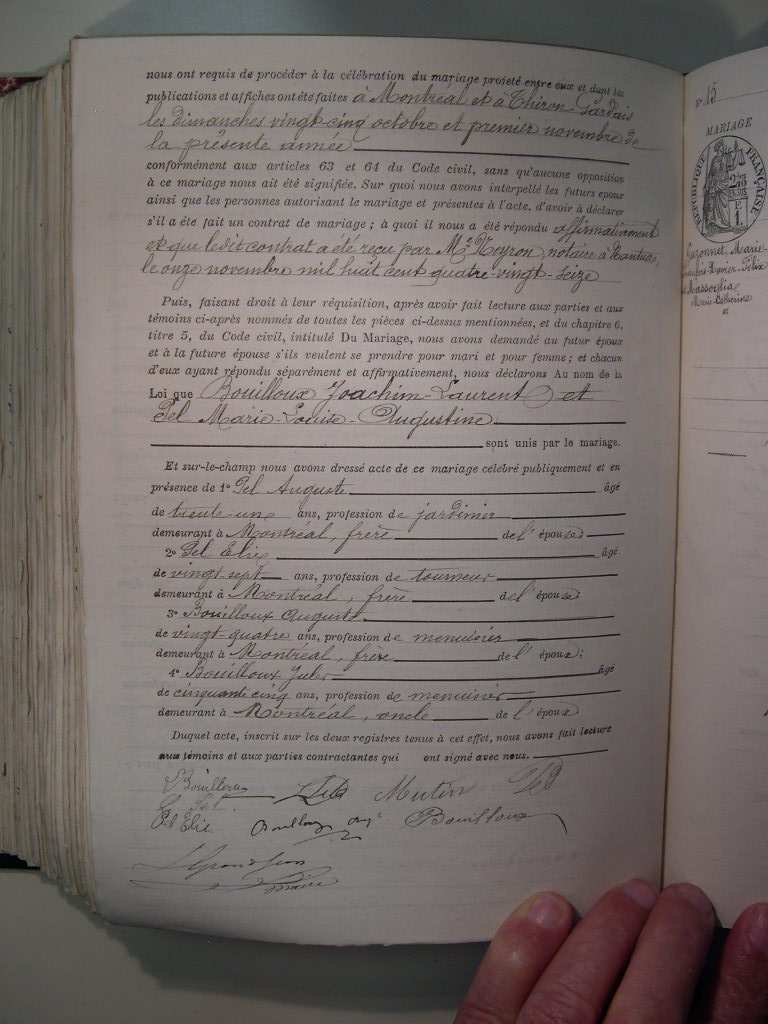 nous ont requis de procéder à la célébration du mariage projeté entre eux et dont les
publications et affiches ont été faites à Montréal et à Thiron-Gardais
les dimanches vingt-cinq octobre et premier novembre de
la présente année
conformément aux articles 63 et 64 du Code civil, sans qu'aucune opposition
à ce mariage nous ait été signifiée. Sur quoi nous avons interpellé les futurs époux
ainsi que les personnes autorisant le mariage et présentes à l'acte, d'avoir à déclarer
s'il a été fait un contrat de mariage ; à quoi il nous a été répondu affirmativement
et que le dit contrat a été reçu par Me Neyron, notaire à Nantua,
le onze novembre mil huit cent quatre-vingt-seize
Puis, faisant droit à leur réquisition, après avoir fait lecture aux parties et aux
témoins ci-après nommés de toutes les pièces ci-dessus mentionnées, et du chapitre 6,
titre 5, du Code civil, intitulé Du Mariage, nous avons demandé au futur époux
et à la future épouse s'ils veulent se prendre pour mari et pour femme ; et chacun
d'eux ayant répondu séparément et affirmativement, nous déclarons Au nom de la
Loi que Bouilloux Joachim-Laurent et
Pel Marie-Louise-Augustine
sont unis par le mariage.
Et sur-le-champ nous avons dressé acte de ce mariage célébré publiquement et en
présence de 1° Pel Auguste âgé
de trente-un ans, profession de jardinier
demeurant à Montréal, frère de l'épouse
2° Pel Elie âgé
de vingt sept ans, profession de tourneur
demeurant à Montréal, frère de l'épouse
3° Bouilloux Auguste
de vingt-quatre ans, profession de menuisier
demeurant à Montréal, frère de l'époux ;
4° Bouilloux Jules âgé
de cinquante cinq ans, profession de menuisier
demeurant à Montréal, oncle de l'époux
Duquel acte, inscrit sur les deux registres tenus à cet effet, nous avons fait lecture
aux témoins et aux parties contractantes qui ont signé avec nous.
Bouilloux Mutin
Pel
Pel Elie Bouilloux Aug Bouilloux
maire
N° 15
MARIAGE
RÉPUBLIQUE FRANÇAISE
Marie-
Xavier-Félix
et
Marie Catherine